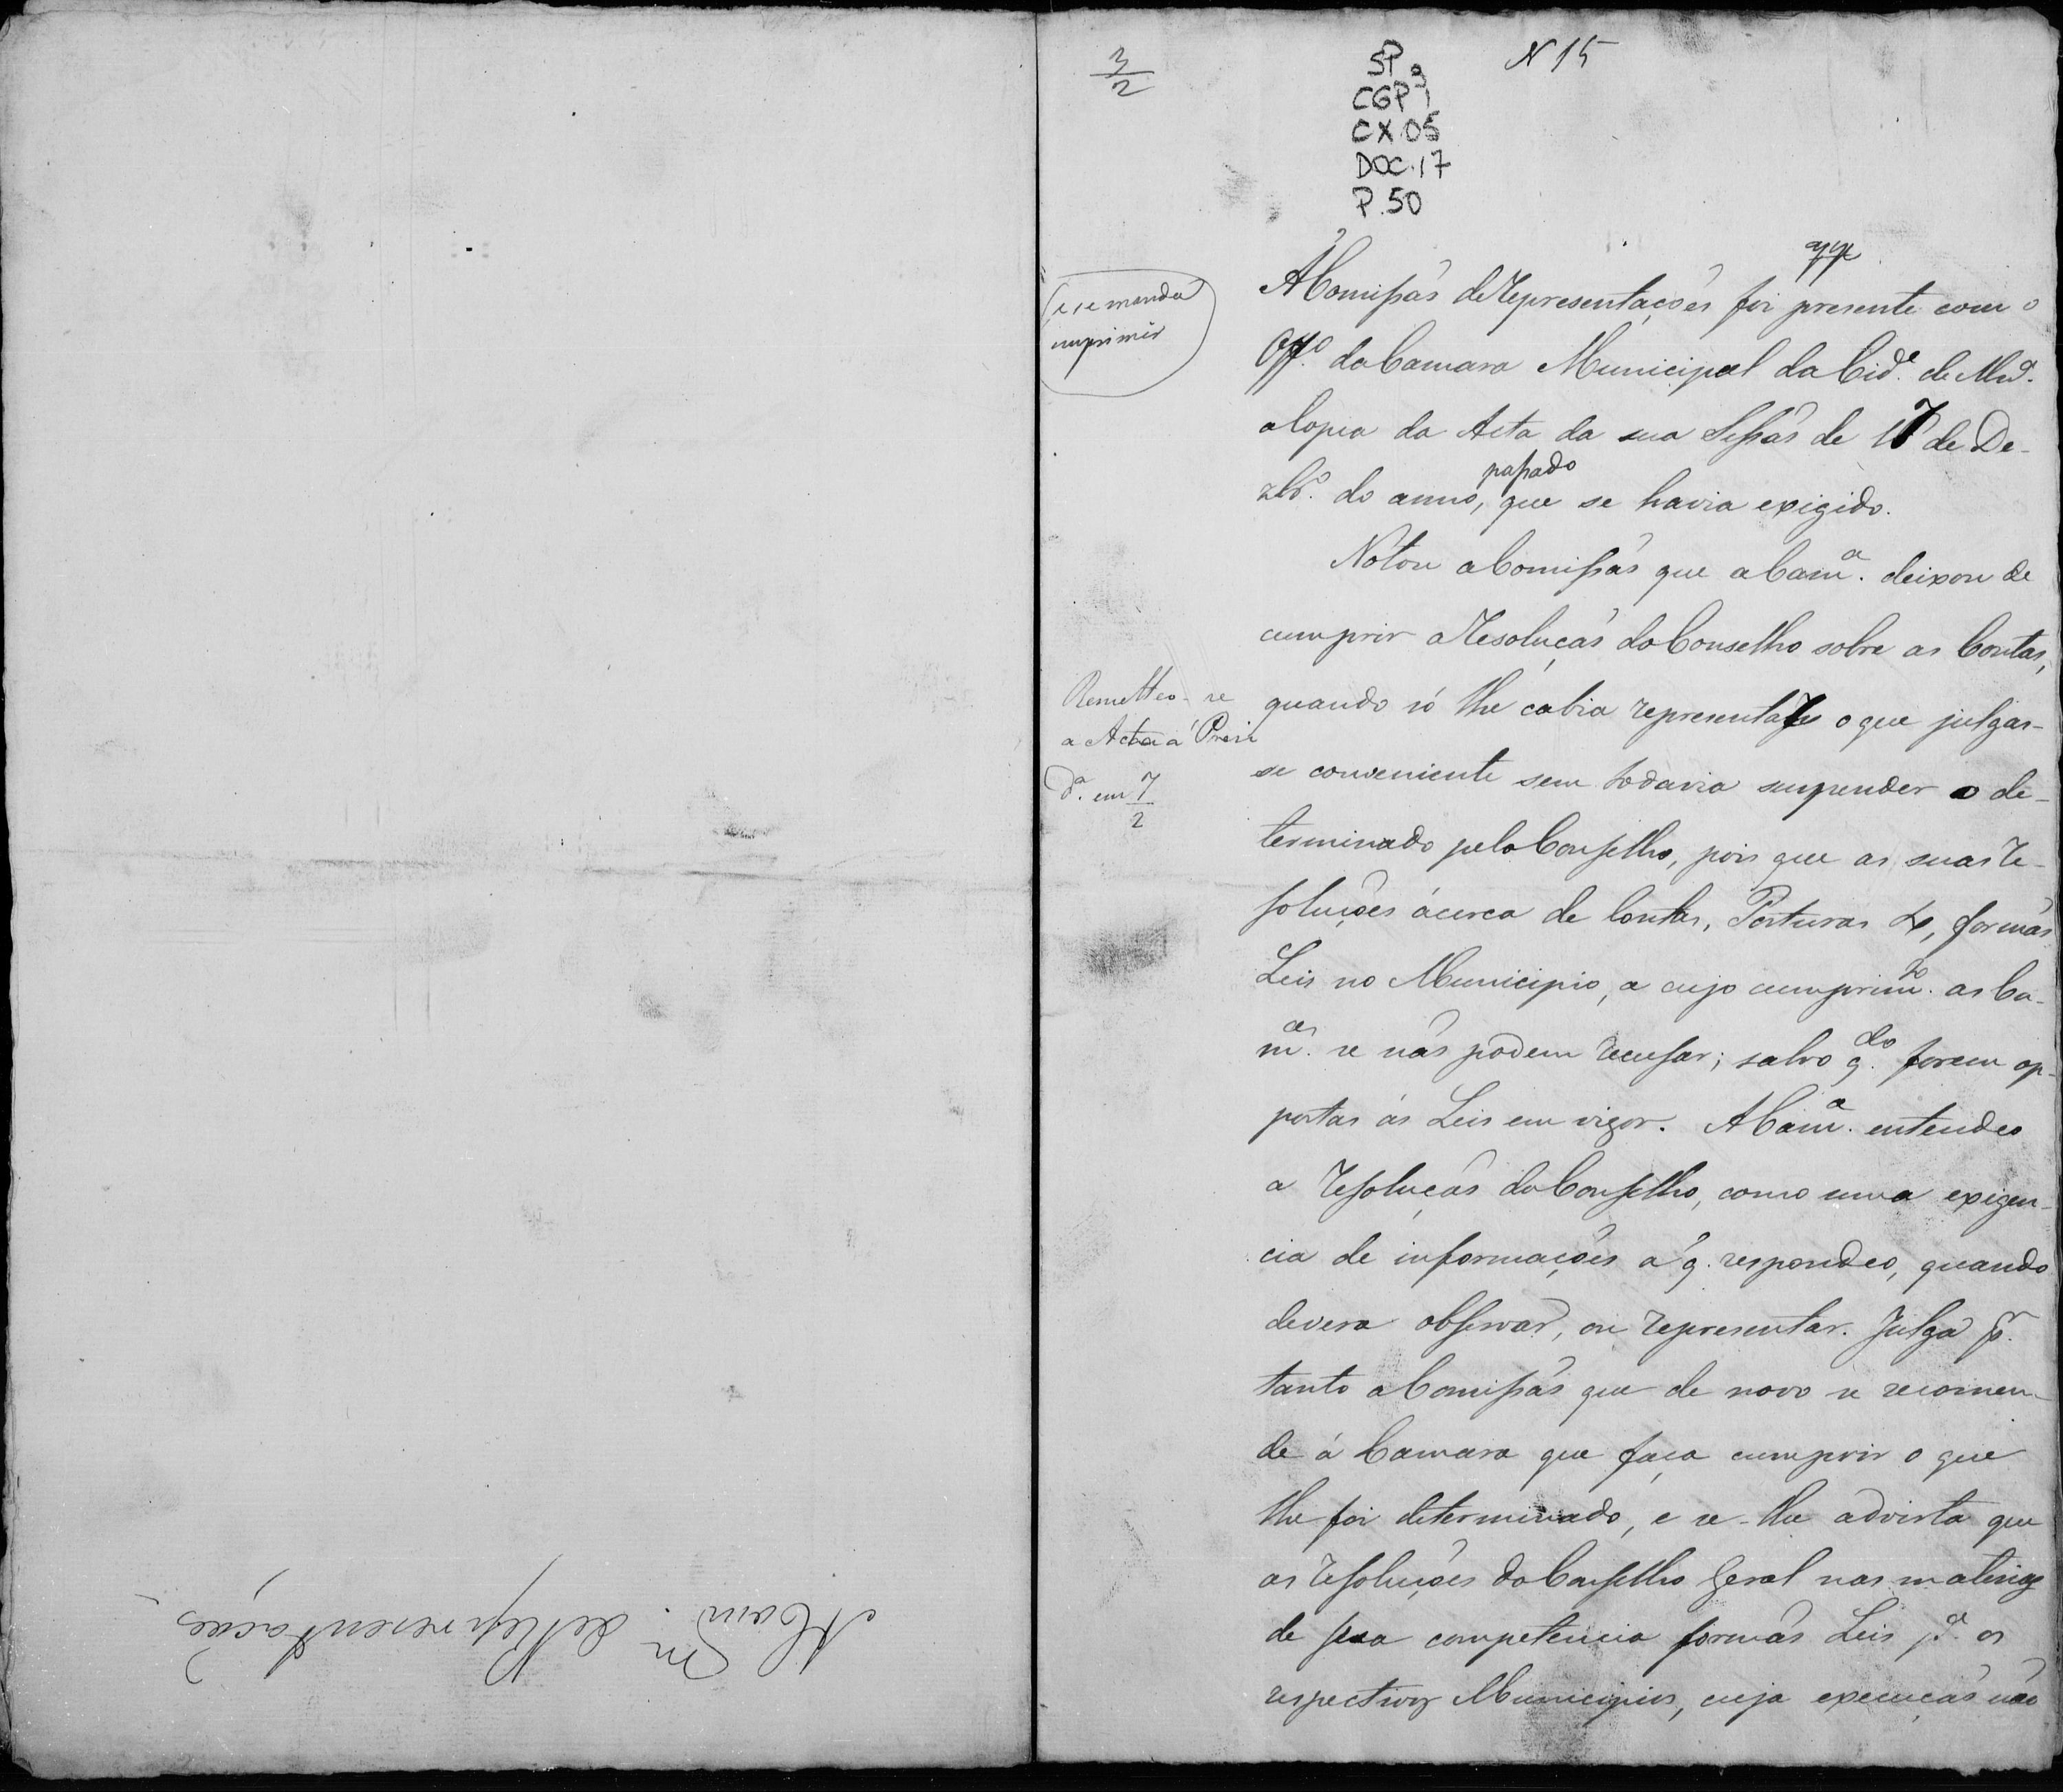 3/2
N 15
SP
CGP 1
CX.05
DOC.17
P.50
app
e se manda
imprimir
A Comissaõ de Representaçoẽs foi presente com o
Offº. da Camara Municipal da Cidᵉ. de
a Copia da Acta da sua Sessaõ de 17 de De-
zbrº. do anno, passado que se havia exigido.
Notou a Comissaõ que a Camᵃ. deixou de
cumprir a Resoluçaõ do Conselho sobre as Contas,
Remetteo-se
a Acta á Presi
dᵃ. em 7/2
quando só lhe cabia representar o que julgas-
se conveniente sem todavia suspender o de-
terminado pelo Conselho, pois que as suas Re-
soluçoẽs ácerca de Contas, Posturas &, formaõ
Leis no Municipio, a cujo cumprimᵗᵒ. as Ca-
mᵃˢ. se naõ podem recusar; salvo qᵈᵒ. forem op-
postas ás Leis em vigor. A Camᵃ. entendeo
a Resoluçaõ do Conselho, como uma exigen-
cia de informaçoẽs a q̃. respondeo, quando
devera observar, ou representar. Julga pʳ.
tanto a Comissaõ que de novo se recomen-
de á Camara que faça cumprir o que
lhe foi determinado, e se-lhe advirta que
as Resoluçoẽs do Conselho Geral nas materias
de sua competencia formaõ Leis pᵃ. os
respectivos Municipios, cuja execuçaõ não
A Comᵐ. de Representações